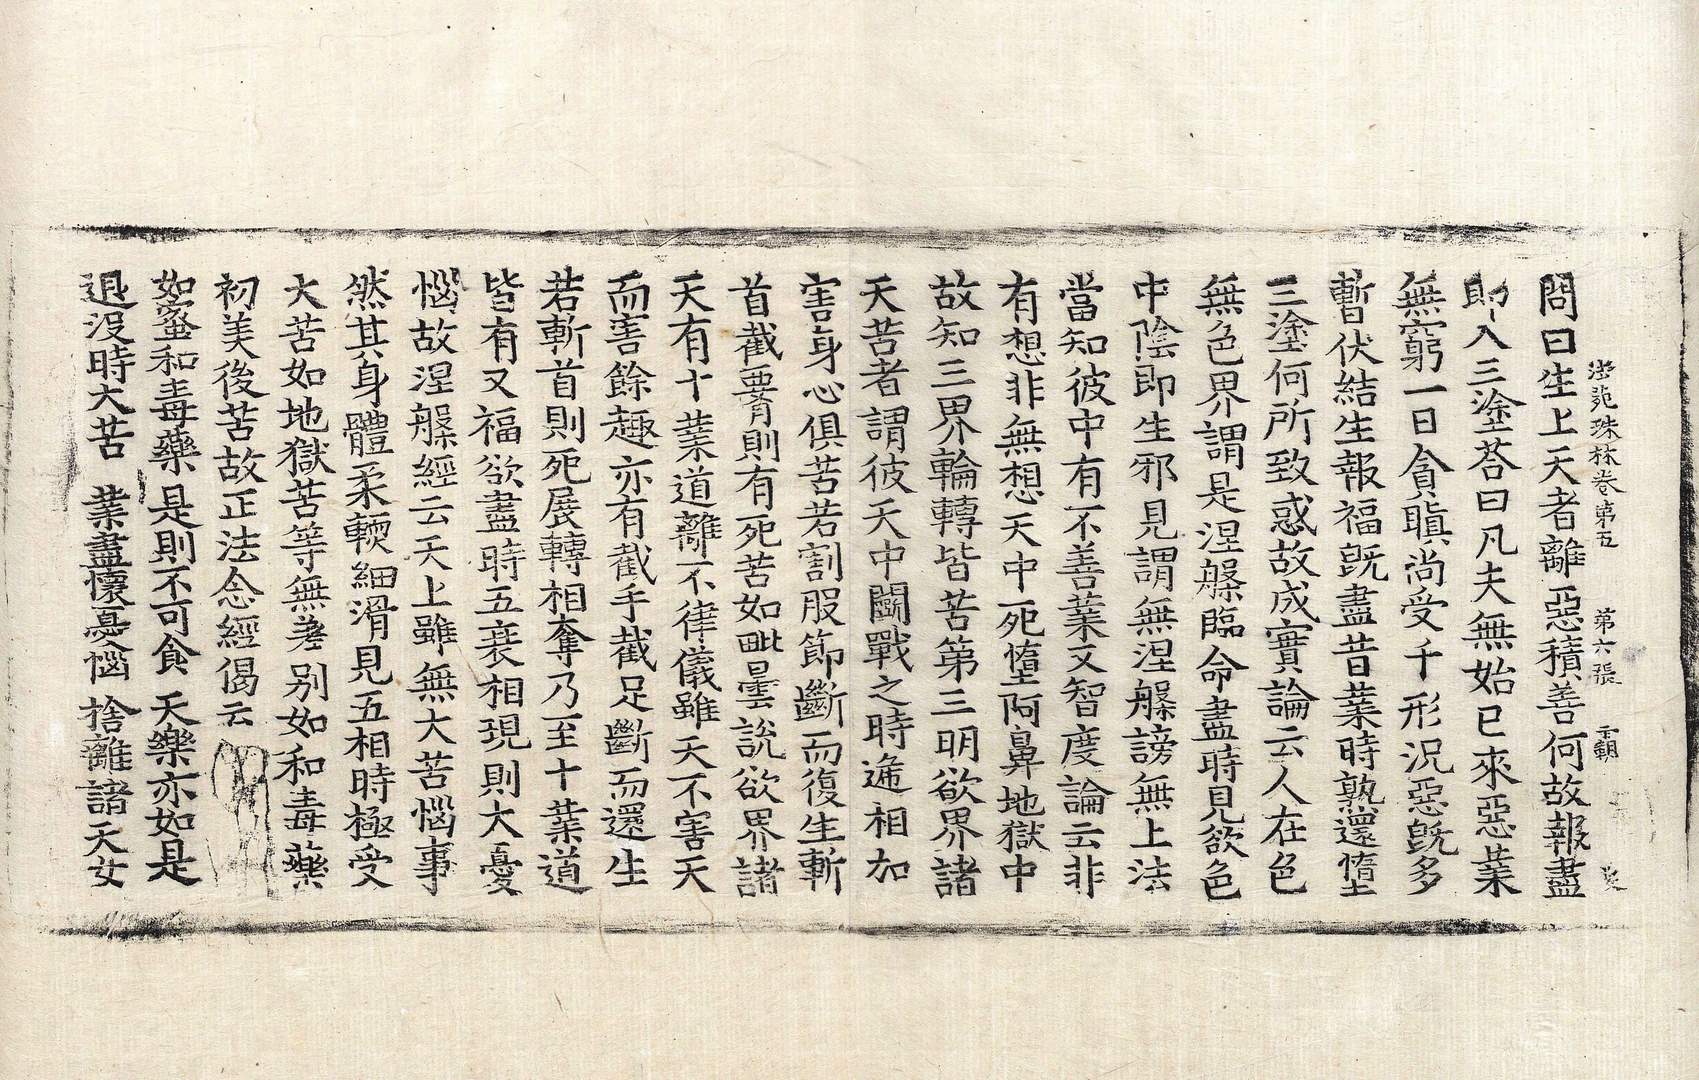 法苑珠林卷第五 第六張 覇
問曰生上天者離惡積善何故報盡
即入三塗荅曰凡夫無始已來惡業
無窮一日貪瞋尚受千形況惡旣多
暫伏結生報福旣盡昔業時熟還墮
三塗何所致惑故成實論云人在色
無色界謂是涅槃臨命盡時見欲色
中陰即生邪見謂無涅槃謗無上法
當知彼中有不善業又智度論云非
有想非無想天中死墮阿鼻地獄中
故知三界輪轉皆苦第三明欲界諸
天苦者謂彼天中鬪戰之時遞相加
害身心俱苦若割股節斷而復生斬
首截要則有死苦如毗曇說欲界諸
天有十業道離不律儀雖天不害天
而害餘趣亦有截手截足斷而還生
若斬首則死展轉相奪乃至十業道
皆有又福欲盡時五衰相現則大憂
惱故涅槃經云天上雖無大苦惱事
然其身體柔輭細滑見五相時極受
大苦如地獄苦等無差別如和毒藥
初美後苦故正法念經偈云
如蜜和毒藥 是則不可食 天樂亦如是
退沒時大苦 業盡懷憂惱 捨離諸天女